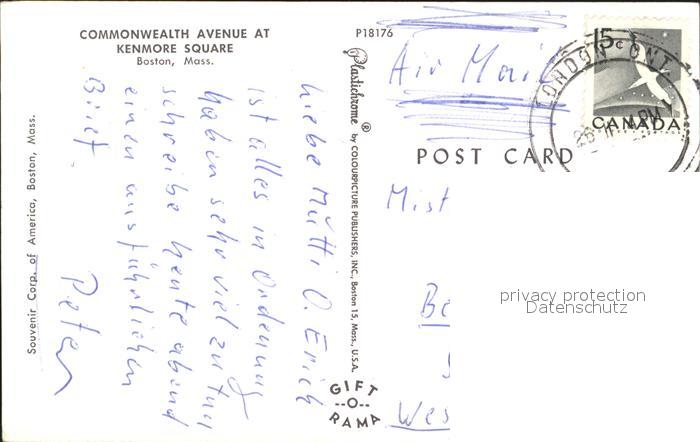 COMMONWEALTH AVENUE AT
KENMORE SQUARE
Boston, Mass.
P18176
Souvenir Corp. of America, Boston, Mass.
Plastichrome ® by COLOURPICTURE PUBLISHERS, INC., Boston 15, Mass., U.S.A.
GIFT
--O--
RAMA
Air Mail
5c
CANADA
LONDON ONT
POST CARD
Liebe Mutti O. Erich
ist alles in Ordnung
haben sehr viel zu tun
schreibe heute abend
einen ausführlichen
Brief.
Peter
Mist
Be
Wes
privacy protection
Datenschutz